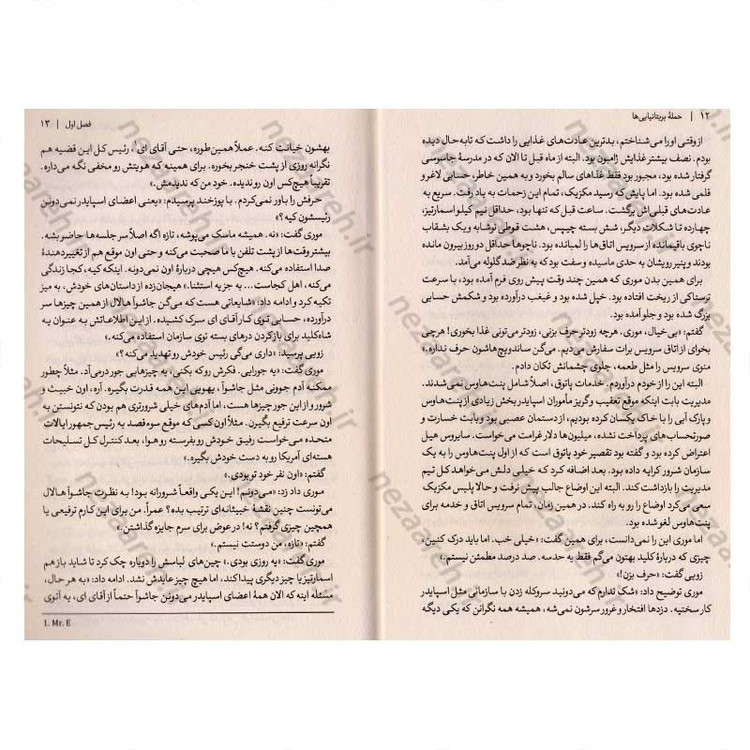 ۱۲ | حملهٔ بریتانیایی‌ها
از وقتی او را می‌شناختم، بدترین عادت‌های غذایی را داشت که تا به حال دیده
بودم. نصف بیشتر غذایش ژامبون بود. البته از ماه قبل تا الان که در مدرسهٔ جاسوسی
گرفتار شده بود، مجبور بود فقط غذاهای سالم بخورد و به همین خاطر، حسابی لاغر و
قلمی شده بود. اما پایش که رسید مکزیک، تمام این زحمات به باد رفت. سریع به
عادت‌های قبلی‌اش برگشت. ساعت قبل که تنها بود، حداقل نیم کیلو اسمارتیز،
چهارده تا شکلات دیگر، شش بسته چیپس، هشت قوطی نوشابه و یک بشقاب
ناچوی باقیمانده از سرویس اتاق‌ها را لمبانده بود. ناچوها حداقل دو روز بیرون مانده
بودند و پنیر رویشان به حدی ماسیده و سفت بود که به نظر ضد گلوله می‌آمد.
برای همین بدن موری که همین چند وقت پیش روی فرم آمده بود، با سرعت
ترسناکی از ریخت افتاده بود. خپل شده بود و غبغب درآورده بود و شکمش حسابی
بزرگ شده بود و جلو آمده بود.
گفتم: «بی‌خیال، موری. هرچه زودتر حرف بزنی، زودتر می‌تونی غذا بخوری! هرچی
بخوای از اتاق سرویس برات سفارش می‌دیم. می‌گن ساندویچ‌هاشون حرف نداره.»
منوی سرویس را مثل طعمه، جلوی چشمانش تکان دادم.
البته این را از خودم درآوردم. خدمات پاتوق، اصلاً شامل پنت‌هاوس نمی‌شدند.
مدیریت بابت اینکه موقع تعقیب و گریز مأموران اسپایدر بخش زیادی از پنت‌هاوس
و پارک آبی را با خاک یکسان کرده بودیم، از دستمان عصبی بود و بابت خسارت و
صورتحساب‌های پرداخت نشده، میلیون‌ها دلار غرامت می‌خواست. سایروس هیل
اعتراض کرده بود و گفته بود تقصیر خود پاتوق است که از اول پنت‌هاوس را به یک
سازمان شرور کرایه داده بود. بعد اضافه کرد که خیلی دلش می‌خواهد کل تیم
مدیریت را بازداشت کند. البته این اوضاع جالب پیش نرفت و حالا پلیس مکزیک
سعی می‌کرد اوضاع را رو به راه کند. در همین زمان، تمام سرویس اتاق و خدمه برای
پنت‌هاوس لغو شده بود.
اما موری این را نمی‌دانست، برای همین گفت: «خیلی خب. اما باید درک کنین،
چیزی که دربارهٔ کلید بهتون می‌گم فقط یه حدسه. صد درصد مطمئن نیستم.»
زویی گفت: «حرف بزن!»
موری توضیح داد: «شک ندارم که می‌دونید سروکله زدن با سازمانی مثل اسپایدر
کار سختیه. دزدها افتخار و غرور سرشون نمی‌شه، همیشه همه نگرانن که یکی دیگه
فصل اول | ۱۳
بهشون خیانت کنه. عملاً همین‌طوره، حتی آقای ای¹، رئیس کل این قضیه هم
نگرانه روزی از پشت خنجر بخوره. برای همینه که هویتش رو مخفی نگه می‌داره.
تقریباً هیچ‌کس اون رو ندیده. خود من که ندیدمش.»
حرفش را باور نمی‌کردم. با پوزخند پرسیدم: «یعنی اعضای اسپایدر نمی‌دونن
رئیسشون کیه؟»
موری گفت: «نه. همیشه ماسک می‌پوشه، تازه اگه اصلاً سر جلسه‌ها حاضر بشه.
بیشتر وقت‌ها از پشت تلفن با ما صحبت می‌کنه و حتی اون موقع هم از تغییردهندهٔ
صدا استفاده می‌کنه. هیچ‌کس هیچی دربارهٔ اون نمی‌دونه. اینکه کیه، کجا زندگی
می‌کنه، اهل کجاست... به جز یه استثنا.» هیجان‌زده از داستان‌های خودش، به میز
تکیه کرد و ادامه داد: «شایعاتی هست که می‌گن جاشوآ هالال از همین چیزها سر
درآورده، حسابی توی کار آقای ای سرک کشیده. از این اطلاعاتش به عنوان یه
شاه‌کلید برای بازکردن درهای بسته توی سازمان استفاده می‌کنه.»
زویی پرسید: «داری می‌گی رئیس خودش رو تهدید می‌کنه؟»
موری گفت: «یه جورایی. فکرش رو که بکنی، یه چیزهایی جور درمی‌آد. مثلاً چطور
ممکنه آدم جوونی مثل جاشوآ، یهویی این همه قدرت بگیره. آره، اون خبیث و
شرور و از این جور چیزها هست، اما آدم‌های خیلی شرورتری هم بودن که نتونستن به
اون سرعت ترفیع بگیرن. مثلاً اون کسی که موقع سوءقصد به رئیس‌جمهور ایالات
متحده می‌خواست رفیق خودش رو بفرسته رو هوا، بعد کنترل کل تسلیحات
هسته‌ای آمریکا رو به دست خودش بگیره.»
گفتم: «اون نفر خود تو بودی.»
موری داد زد: «می‌دونم! این یکی واقعاً شرورانه بود! به نظرت جاشوآ هالال
می‌تونست چنین نقشهٔ خبیثانه‌ای ترتیب بده؟ عمراً. من برای این کارم ترفیعی یا
همچین چیزی گرفتم؟ نه! در عوض برای سرم جایزه گذاشتن.»
گفتم: «تازه، من دوستت نیستم.»
موری گفت: «یه روزی بودی.» چین‌های لباسش را دوباره چک کرد تا شاید باز هم
اسمارتیز یا چیز دیگری پیدا کند، اما هیچ چیز عایدش نشد. ادامه داد: «به هر حال،
مسئله اینه که الان همهٔ اعضای اسپایدر می‌دونن جاشوآ حتماً از آقای ای، یه آتوی
1. Mr. E
nezaareh.ir